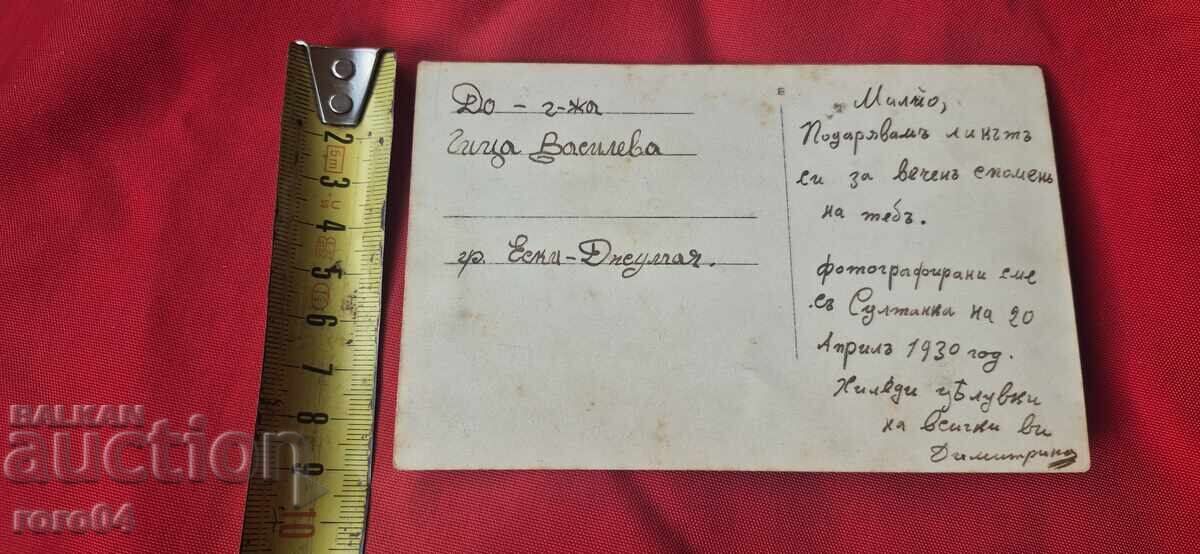 До - г-жа
Гица Василева
гр. Ески-Джумая.
Милйо,
Подарявамъ ликътъ
си за вечен споменъ
на тебъ.
фотографирани сме
съ Султанка на 20
Априлъ 1930 год.
Хиляди цѣлувки
на всички ви
Димитрина
2
3
4
5
6
7
8
9
10
5m
BALKAN
auction
roro64